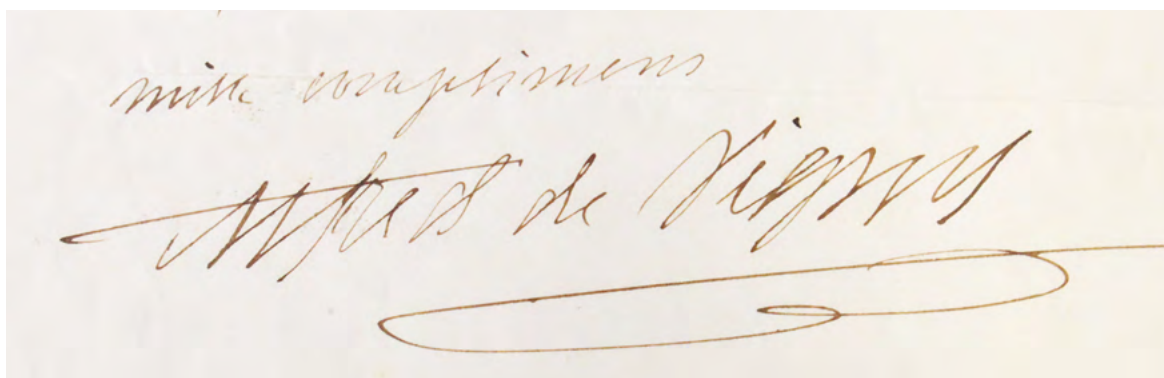 mille complimens
Alfred de Vigny